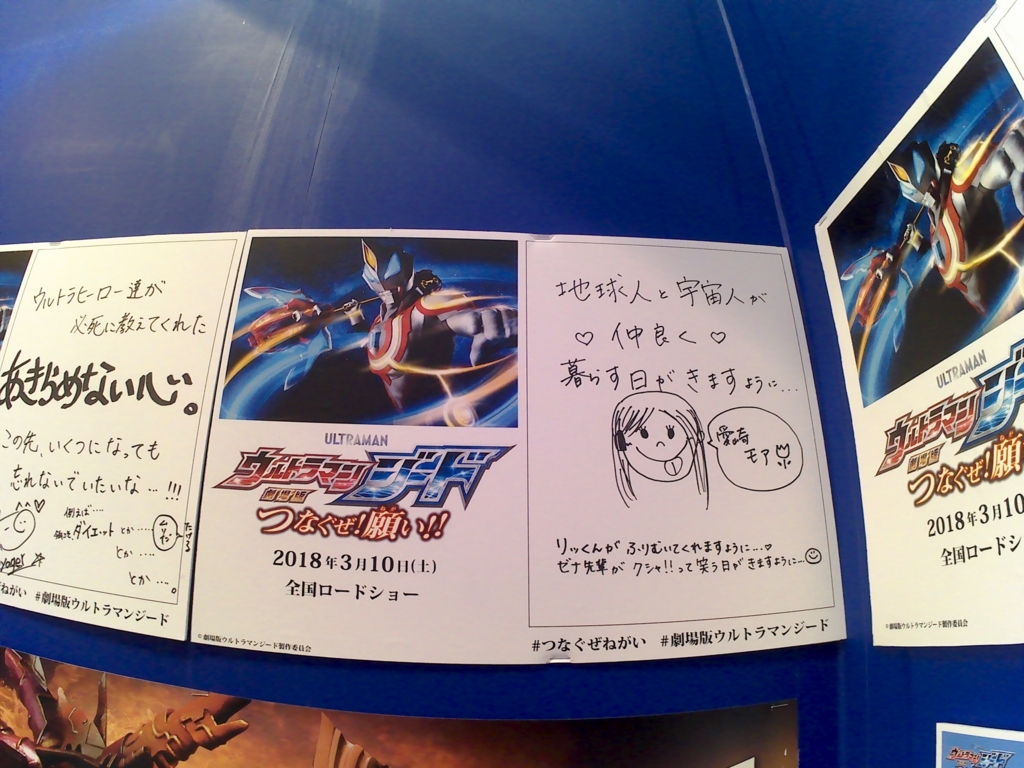 ウルトラヒーロー達が
必死に教えてくれた
あきらめない心。
この先、いくつになっても
忘れないでいたいな…!!!
例えば…
ダイエットとか…
とか…
とか…。
#劇場版ウルトラマンジード
ULTRAMAN
ウルトラマンジード
劇場版
つなぐぜ!願い!!
2018年3月10日(土)
全国ロードショー
©劇場版ウルトラマンジード製作委員会
地球人と宇宙人が
♡ 仲良く ♡
暮らす日がきますように…
愛崎
モア
りっくんが ふりむいてくれますように…♡
ゼナ先輩が クシャ!!って笑う日がきますように…
#つなぐぜねがい #劇場版ウルトラマンジード
ULTRAMAN
ウルトラマンジ
劇場版
つなぐぜ!願
2018年3月10
全国ロードシ
©劇場版ウルトラマンジード製作委員会
ウルトラマンジード